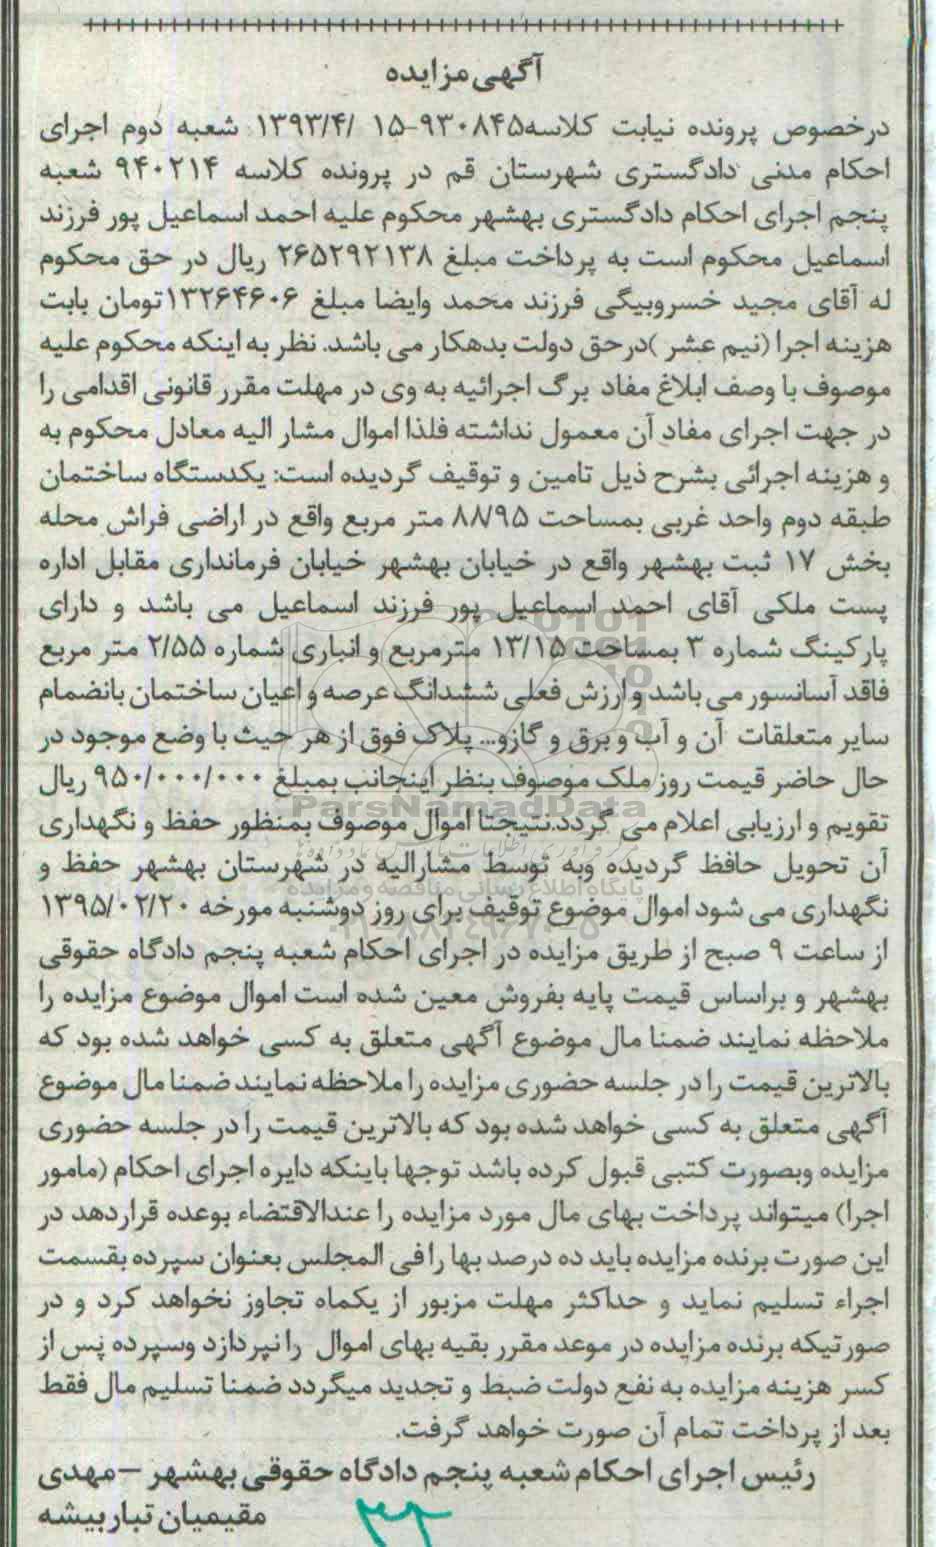 آگهی مزایده
درخصوص پرونده نیابت کلاسه۹۳۰۸۴۵-۱۵ /۱۳۹۳/۴ شعبه دوم اجرای
احکام مدنی دادگستری شهرستان قم در پرونده کلاسه ۹۴۰۲۱۴ شعبه
پنجم اجرای احکام دادگستری بهشهر محکوم علیه احمد اسماعیل پور فرزند
اسماعیل محکوم است به پرداخت مبلغ ۲۶۵۲۹۲۱۳۸ ریال در حق محکوم
له آقای مجید خسروبیگی فرزند محمد وایضا مبلغ ۱۳۲۶۴۶۰۶تومان بابت
هزینه اجرا (نیم عشر )درحق دولت بدهکار می باشد. نظر به اینکه محکوم علیه
موصوف با وصف ابلاغ مفاد برگ اجرائیه به وی در مهلت مقرر قانونی اقدامی را
در جهت اجرای مفاد آن معمول نداشته فلذا اموال مشار الیه معادل محکوم به
و هزینه اجرائی بشرح ذیل تامین و توقیف گردیده است: یکدستگاه ساختمان
طبقه دوم واحد غربی بمساحت ۸۸/۹۵ متر مربع واقع در اراضی فراش محله
بخش ۱۷ ثبت بهشهر واقع در خیابان بهشهر خیابان فرمانداری مقابل اداره
پست ملکی آقای احمد اسماعیل پور فرزند اسماعیل می باشد و دارای
پارکینگ شماره ۳ بمساحت ۱۳/۱۵ مترمربع و انباری شماره ۲/۵۵ متر مربع
فاقد آسانسور می باشد و ارزش فعلی ششدانگ عرصه و اعیان ساختمان بانضمام
سایر متعلقات آن و آب و برق و گازو... پلاک فوق از هر حیث با وضع موجود در
حال حاضر قیمت روز ملک موصوف بنظر اینجانب بمبلغ ۹۵۰/۰۰۰/۰۰۰ ریال
ParsNamadData
تقویم و ارزیابی اعلام می گردد.نتیجتا اموال موصوف بمنظور حفظ و نگهداری
آن تحویل حافظ گردیده وبه توسط مشارالیه در شهرستان بهشهر حفظ و
پایگاه اطلاع رسانی مناقصه و مزایده
نگهداری می شود اموال موضوع توقیف برای روز دوشنبه مورخه ۱۳۹۵/۰۲/۲۰
۰۲۱-۸۸۳۴۹۶۷۰-۵
از ساعت ۹ صبح از طریق مزایده در اجرای احکام شعبه پنجم دادگاه حقوقی
بهشهر و براساس قیمت پایه بفروش معین شده است اموال موضوع مزایده را
ملاحظه نمایند ضمنا مال موضوع آگهی متعلق به کسی خواهد شده بود که
بالاترین قیمت را در جلسه حضوری مزایده را ملاحظه نمایند ضمنا مال موضوع
آگهی متعلق به کسی خواهد شده بود که بالاترین قیمت را در جلسه حضوری
مزایده وبصورت کتبی قبول کرده باشد توجها باینکه دایره اجرای احکام (مامور
اجرا) میتواند پرداخت بهای مال مورد مزایده را عندالاقتضاء بوعده قراردهد در
این صورت برنده مزایده باید ده درصد بها را فی المجلس بعنوان سپرده بقسمت
اجراء تسلیم نماید و حداکثر مهلت مزبور از یکماه تجاوز نخواهد کرد و در
صورتیکه برنده مزایده در موعد مقرر بقیه بهای اموال را نپردازد وسپرده پس از
کسر هزینه مزایده به نفع دولت ضبط و تجدید میگردد ضمنا تسلیم مال فقط
بعد از پرداخت تمام آن صورت خواهد گرفت.
رئیس اجرای احکام شعبه پنجم دادگاه حقوقی بهشهر –مهدی
مقیمیان تبار بیشه